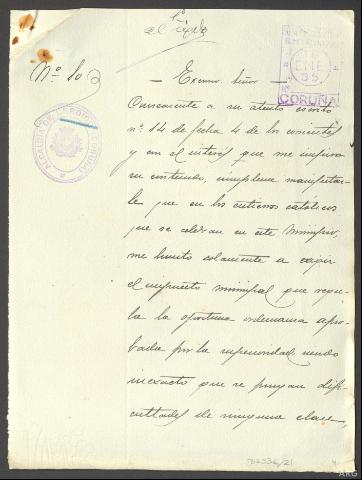 al
Nº 80
ENE
35
CORUÑA
ALCALDIA DE (CORUÑA)
— Excmo. Señor —
Consecuente a su atento escrito
nº. 14 de fecha 4 de los corrientes
y con el interés que me inspira
su contenido, cúmpleme manifestar-
le que en los entierros católicos
que se celebran en este Municipio,
me limito solamente a exigir
el impuesto municipal que regu-
la la oportuna ordenanza apro-
bada por la superioridad siendo
inexacto que se pongan difi-
cultades de ninguna clase,
ARG